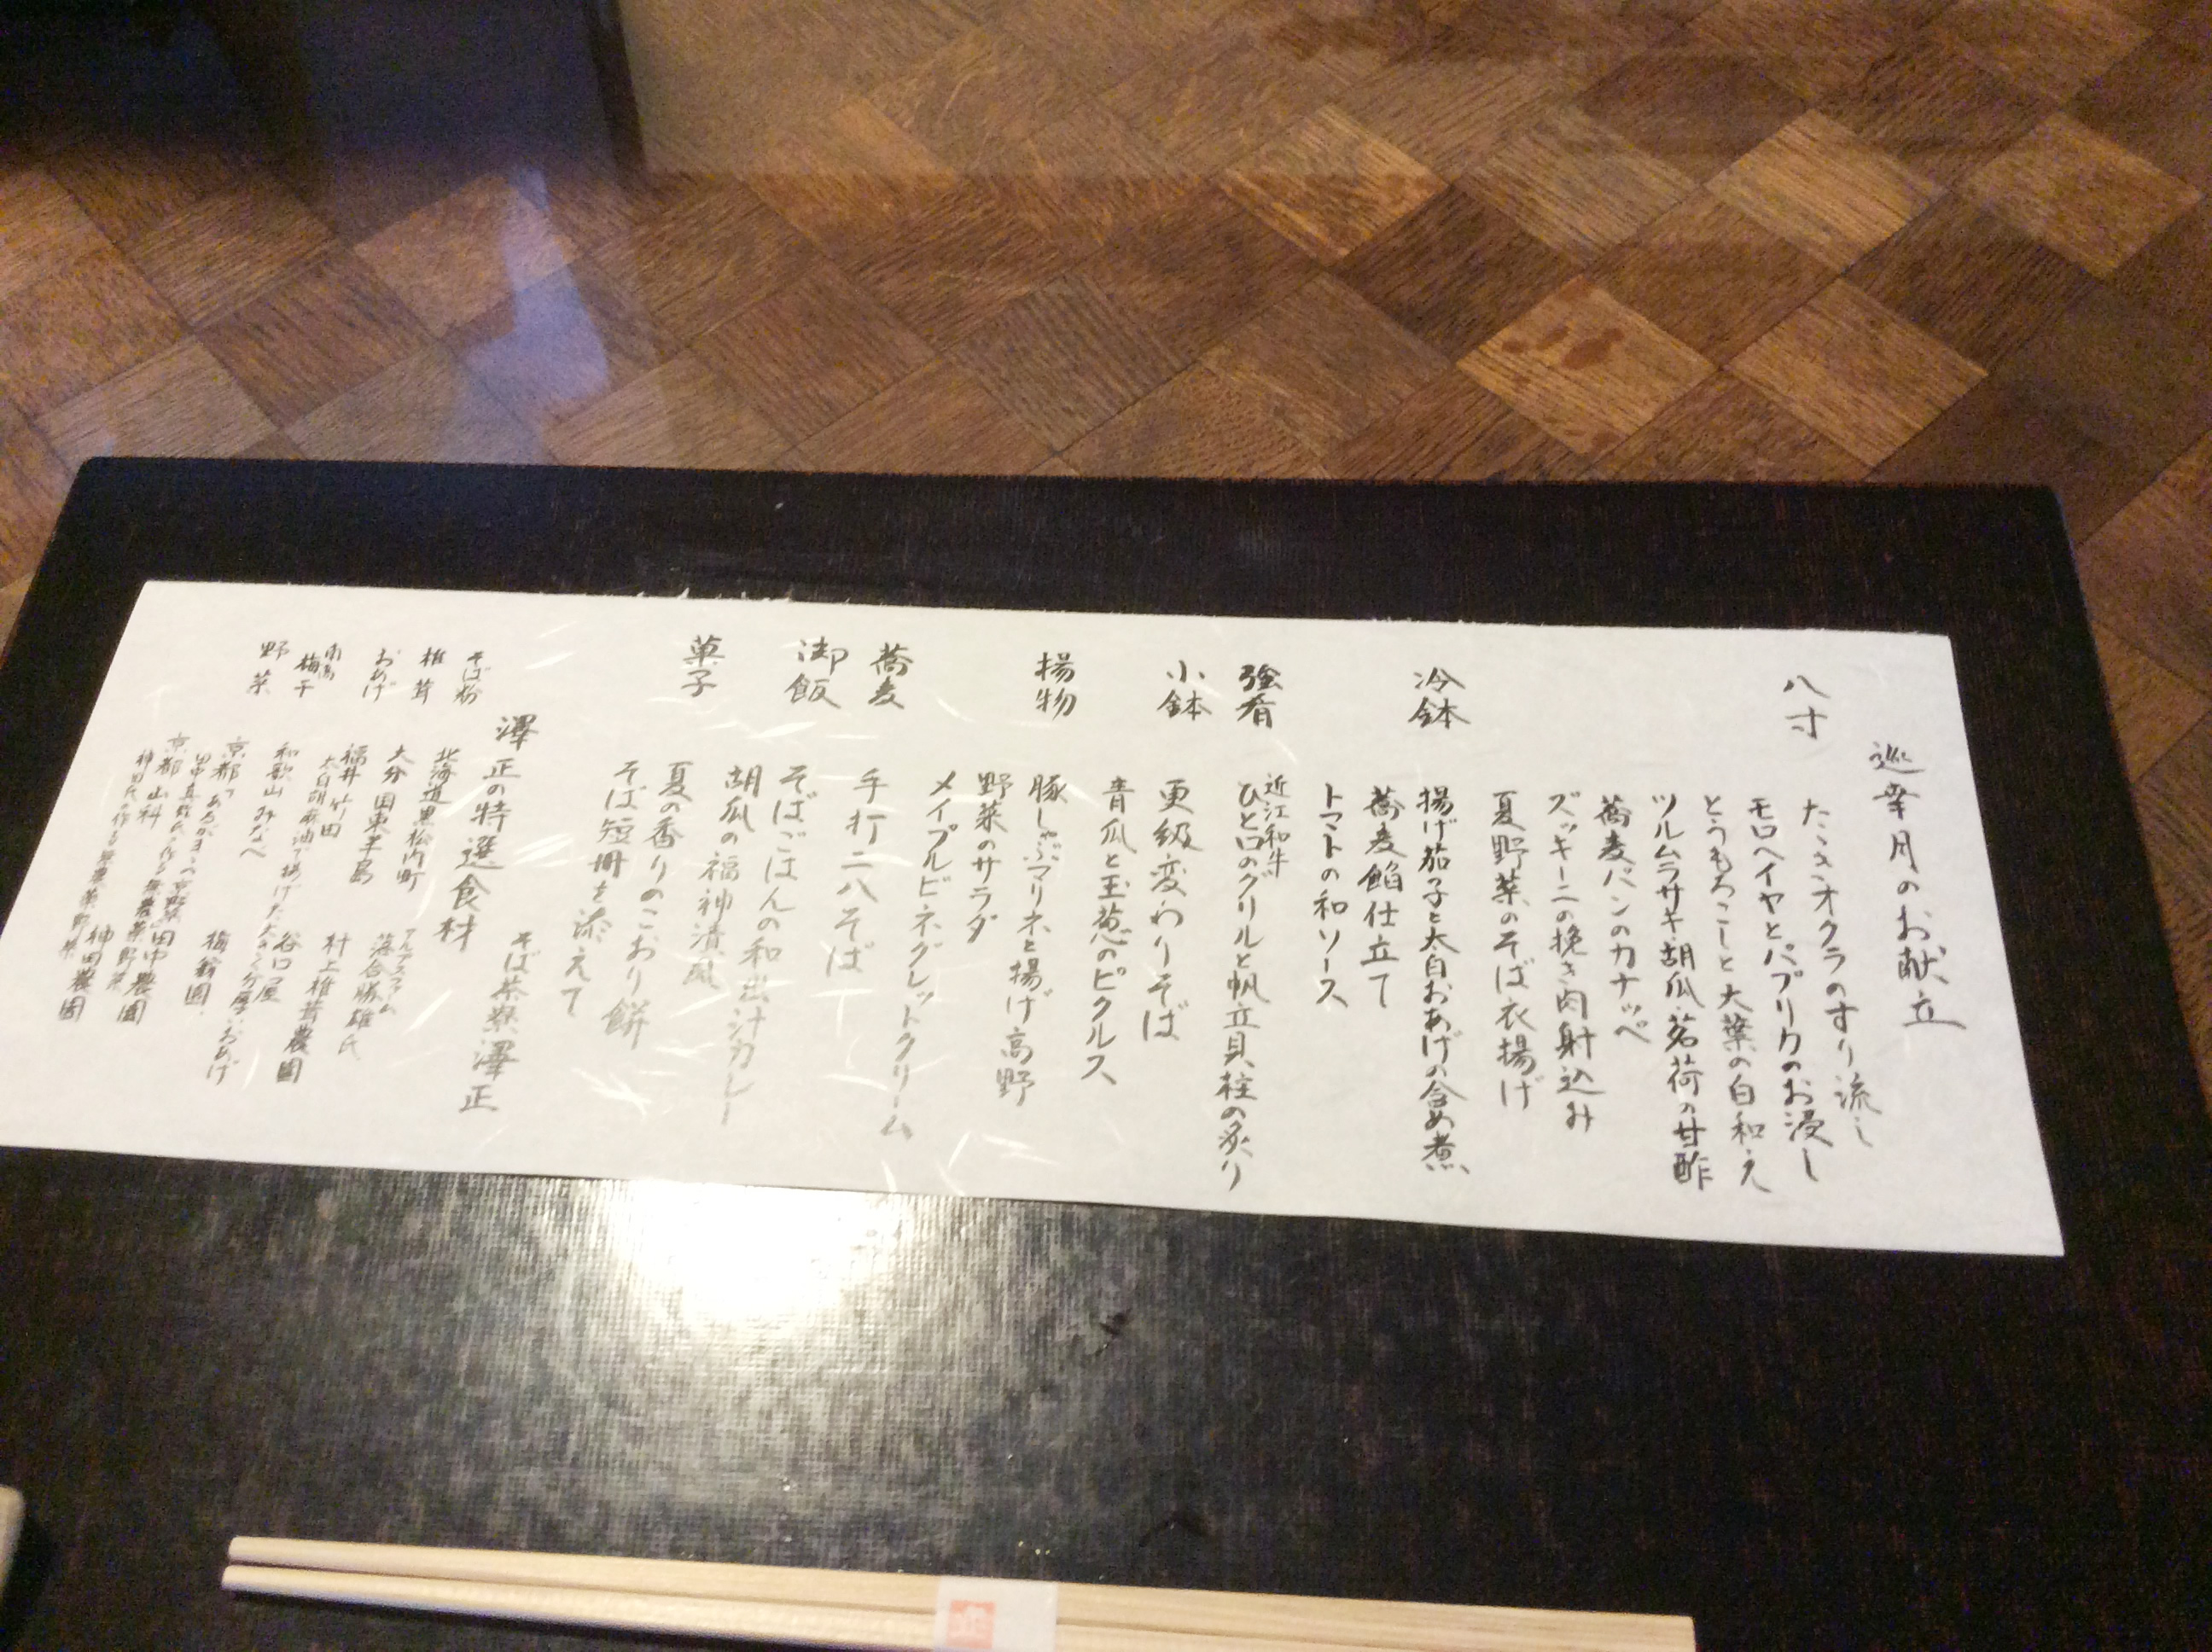 巡幸月のお献立
八寸
たたきオクラのすり流し
モロヘイヤとパプリカのお浸し
とうもろこしと大葉の白和え
ツルムラサキ・胡瓜・茗荷の甘酢
蕎麦パンのカナッペ
ズッキーニの挽き肉射込み
夏野菜のそば衣揚げ
冷鉢
揚げ茄子と太白おあげの含め煮
蕎麦餡仕立て
トマトの和ソース
強肴
近江和牛
ひと口のグリルと帆立貝柱の炙り
小鉢
更級変わりそば
青瓜と玉葱のピクルス
揚物
豚しゃぶマリネと揚げ高野
野菜のサラダ
メイプルビネグレットクリーム
蕎麦
手打二八そば
御飯
そばごはんの和出汁カレー
胡瓜の福神漬風
菓子
夏の香りのこおり餅
そば短冊を添えて
そば茶寮澤正
澤正の特選食材
そば粉
北海道黒松内町
アルプスファーム
落合勝雄氏
椎茸
大分 国東半島
村上椎茸農園
おあげ
福井 竹田
谷口屋
太白胡麻油で揚げた大きく分厚いおあげ
南高
梅干
和歌山 みなべ
梅翁園
野菜
田中農園
田中真弥氏の作る無農薬野菜
京都 山科
神田農園
神田氏の作る無農薬野菜